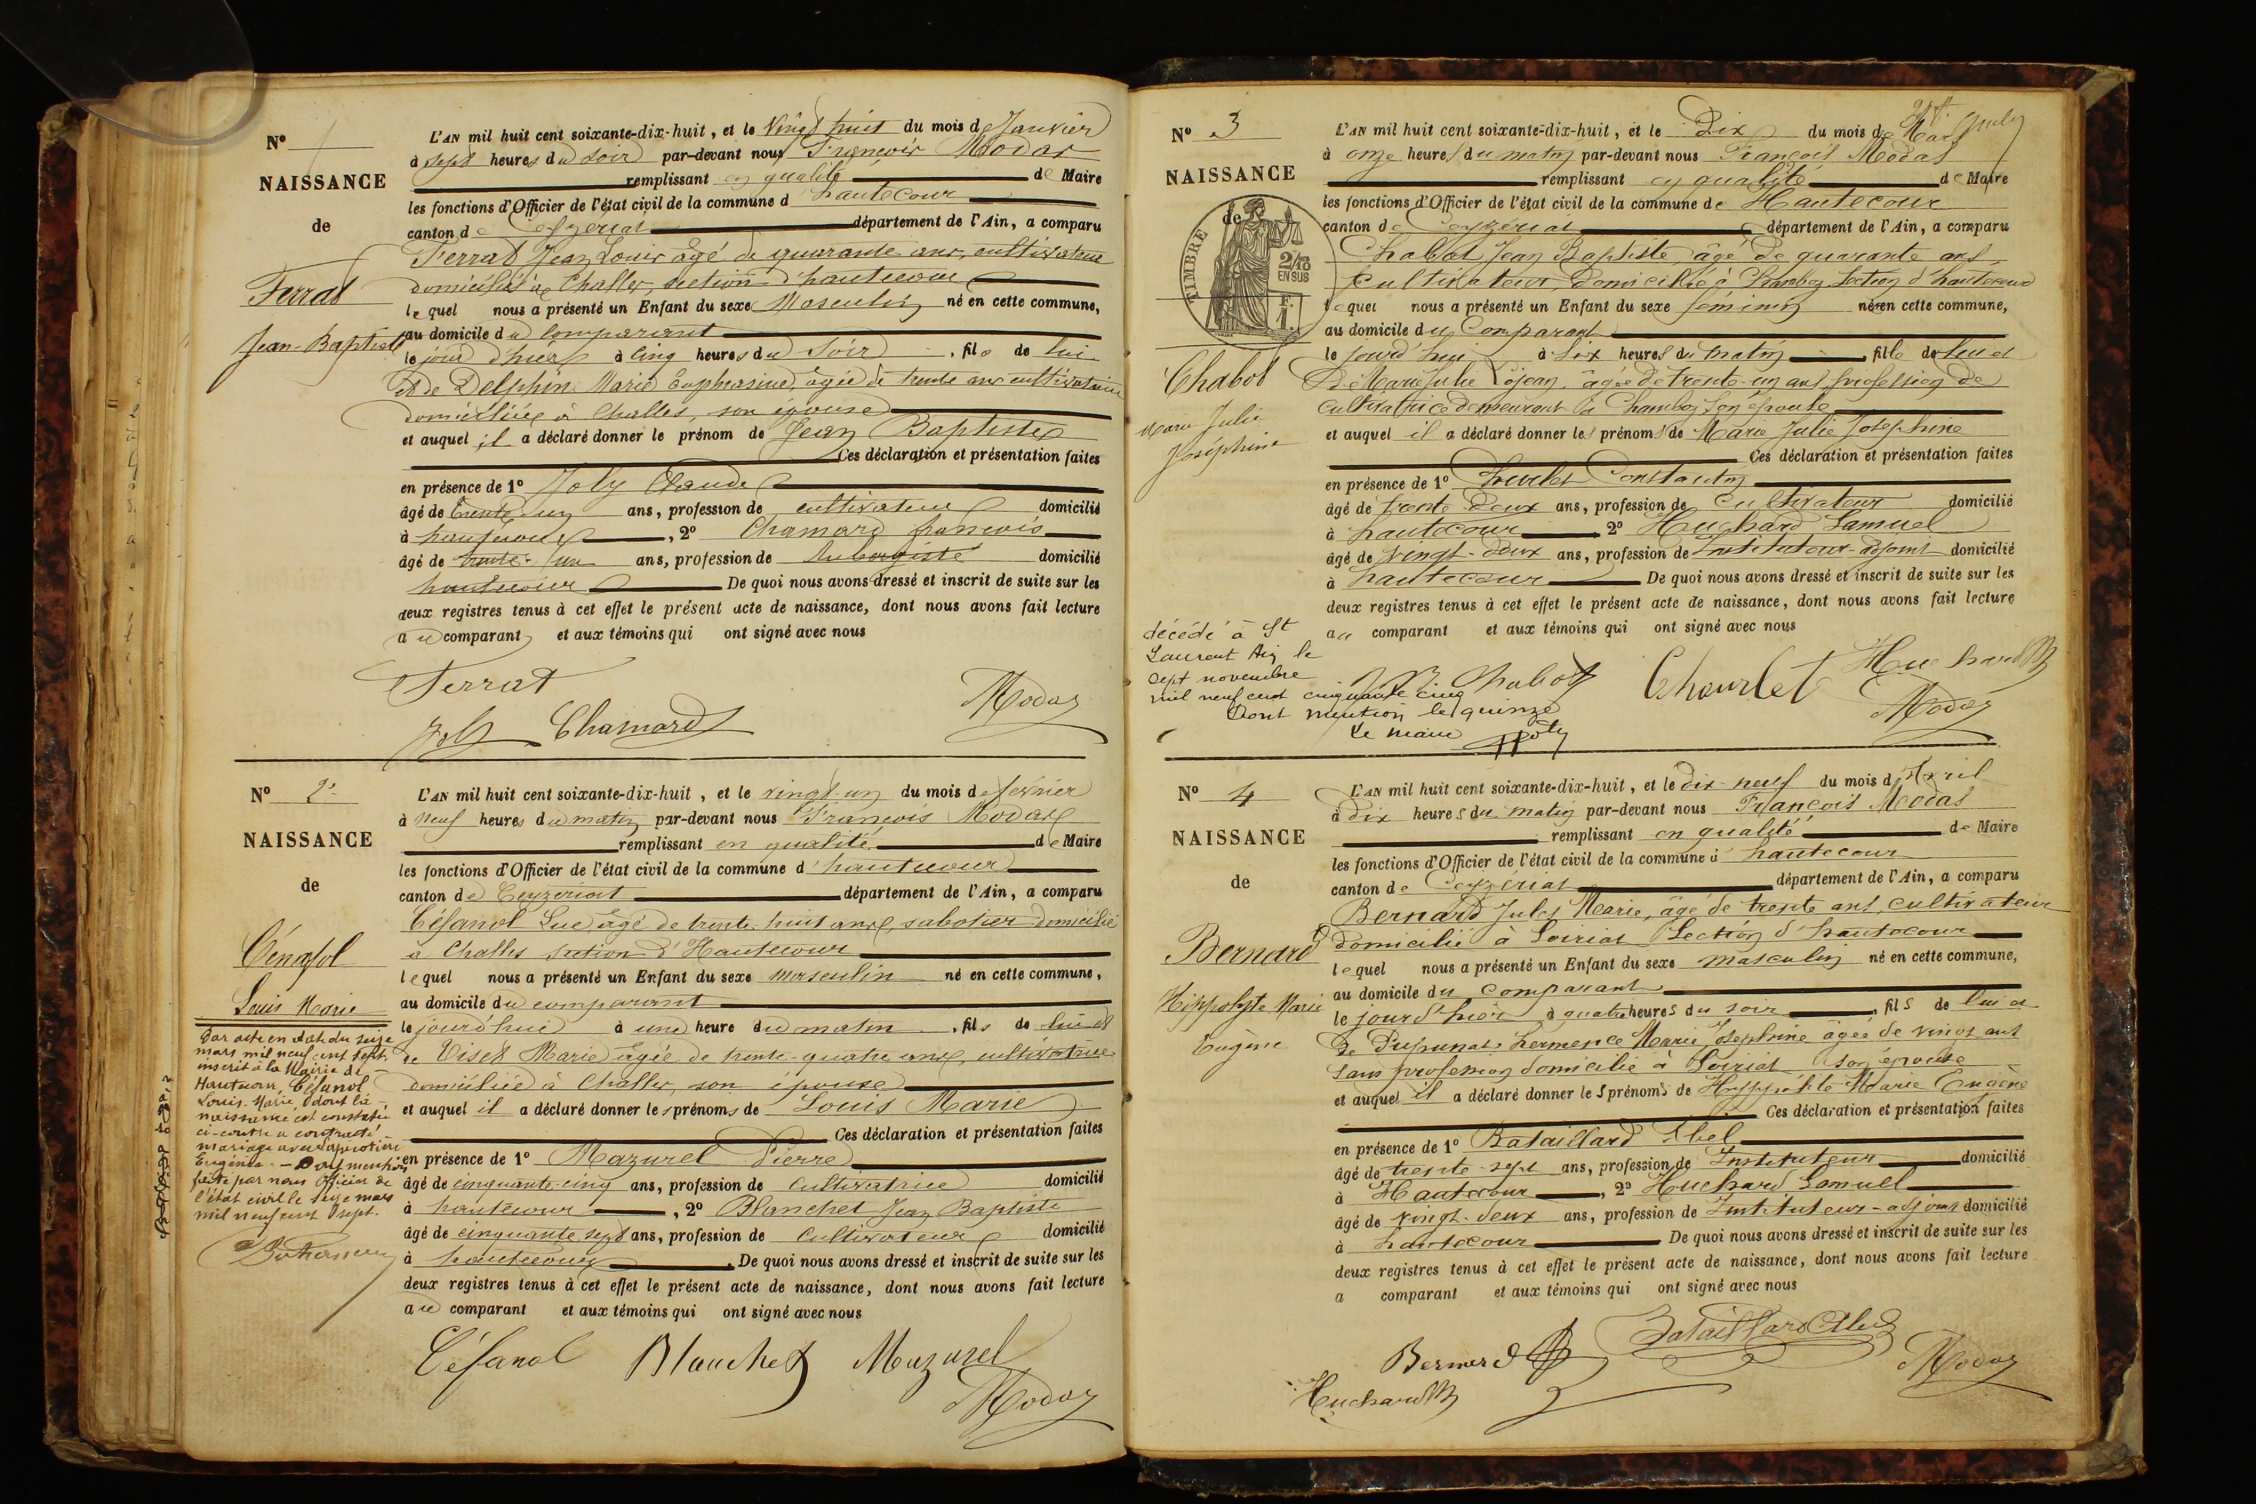 N° 1
NAISSANCE
de
Ferrat
Jean-Baptiste
L'AN mil huit cent soixante-dix-huit, et le Vingt huit du mois de Janvier
à sept heures du soir par-devant nous François Modas
remplissant en qualité de Maire
les fonctions d'Officier de l'état civil de la commune d'hautecour
canton de Ceyzeriat département de l'Ain, a comparu
Ferrat Jean Louis âgé de quarante ans, cultivateur
domicilié à Challes, section d'hautecour
lequel nous a présenté un Enfant du sexe Masculin né en cette commune,
au domicile du Comparant
le jour d'hier à cinq heures du soir, fils de lui
et de Delphin Marie Euphrasine, âgée de trente ans cultivatrice
domiciliée à Challes, son épouse
et auquel il a déclaré donner le prénom de Jean Baptiste
Ces déclaration et présentation faites
en présence de 1° Joly Claude
âgé de trente-un ans, profession de cultivateur domicilié
à hautecour, 2° Chamard françois
âgé de trente-un ans, profession de Aubergiste domicilié
hautecour De quoi nous avons dressé et inscrit de suite sur les
deux registres tenus à cet effet le présent acte de naissance, dont nous avons fait lecture
au comparant et aux témoins qui ont signé avec nous
Ferrat
Joly Chamard Modas
N° 2
NAISSANCE
de
Louis Marie
Par acte en date du seize
mars mil neuf cent sept
inscrit à la Mairie de
Hautecour, Céfanol
Louis-Marie dont la
naissance est constatée
ci-contre a contracté
mariage avec
Eugénie. - Dont mention
faite par nous Officier de
l'état civil le seize mars
mil neuf cent sept.
L'AN mil huit cent soixante-dix-huit, et le vingt-un du mois de février
à neuf heures du matin par-devant nous François Modas
remplissant en qualité de Maire
les fonctions d'Officier de l'état civil de la commune d'hautecour
canton de Ceyzeriat département de l'Ain, a comparu
Céfanol Luc âgé de trente-huit ans, sabotier domicilié
à Challes section d'Hautecour
lequel nous a présenté un Enfant du sexe masculin né en cette commune,
au domicile du comparant
le jourd'hui à une heure du matin, fils de lui et
de Viset Marie âgée de trente-quatre ans, cultivatrice
domiciliée à Challes, son épouse
et auquel il a déclaré donner les prénoms de Louis Marie
Ces déclaration et présentation faites
en présence de 1° Mazurel Pierre
âgé de cinquante cinq ans, profession de cultivatrice domicilié
à hautecour, 2° Blanchet Jean Baptiste
âgé de cinquante sept ans, profession de Cultivateur domicilié
à hautecour. De quoi nous avons dressé et inscrit de suite sur les
deux registres tenus à cet effet le présent acte de naissance, dont nous avons fait lecture
au comparant et aux témoins qui ont signé avec nous
Céfanol Blanchet Mazurel
Modas
N° 3
NAISSANCE
de
TIMBRE
2/10
EN SUS
F.
1.
Chabot
Marie Julie
Joséphine
L'AN mil huit cent soixante-dix-huit, et le Dix du mois de Mars
à onze heures du matin par-devant nous François Modas
remplissant en qualité de Maire
les fonctions d'Officier de l'état civil de la commune de Hautecour
canton de Ceyzériat département de l'Ain, a comparu
Chabot Jean Baptiste, âgé de quarante ans,
Cultivateur, domicilié à Chambod Section d'hautecour
lequel nous a présenté un Enfant du sexe féminin née en cette commune,
au domicile du Comparant
le jourd'hui à six heures du matin, fille de lui et
de Marie Julie Dojean, âgée de trente-un ans, profession de
cultivatrice demeurant à Chambod son épouse
et auquel il a déclaré donner les prénoms de Marie Julie Joséphine
Ces déclaration et présentation faites
en présence de 1° Churlet Constantin
âgé de trente-deux ans, profession de Cultivateur domicilié
à hautecour 2° Huchard Samuel
âgé de vingt-deux ans, profession de Instituteur-adjoint domicilié
à hautecour De quoi nous avons dressé et inscrit de suite sur les
deux registres tenus à cet effet le présent acte de naissance, dont nous avons fait lecture
au comparant et aux témoins qui ont signé avec nous
décédé à St
Laurent Ain le
sept novembre
mil neuf cent cinquante cinq
Dont mention le quinze
Le maire
Chabot Churlet Huchard
Modas
N° 4
NAISSANCE
de
Bernard
Hippolyte Marie
Eugène
L'AN mil huit cent soixante-dix-huit, et le dix-neuf du mois d'Avril
à dix heures du matin par-devant nous François Modas
remplissant en qualité de Maire
les fonctions d'Officier de l'état civil de la commune d'hautecour
canton de Ceyzériat département de l'Ain, a comparu
Bernard Jules Marie, âgé de trente ans, cultivateur
domicilié à Soiriat Section d'hautecour
lequel nous a présenté un Enfant du sexe masculin né en cette commune,
au domicile du Comparant
le jour d'hier à quatre heures du soir, fils de lui et
de Dupunat hermence Marie Joséphine âgée de vingt ans
sans profession domicilié à Soiriat son épouse
et auquel il a déclaré donner les prénoms de Hyppolite Marie Eugène
Ces déclaration et présentation faites
en présence de 1° Bataillard Abel
âgé de trente-sept ans, profession de Instituteur domicilié
à Hautecour, 2° Huchard Samuel
âgé de vingt-deux ans, profession de Instituteur-adjoint domicilié
à hautecour De quoi nous avons dressé et inscrit de suite sur les
deux registres tenus à cet effet le présent acte de naissance, dont nous avons fait lecture
a comparant et aux témoins qui ont signé avec nous
Bernard Bataillard Abel
Huchard Modas